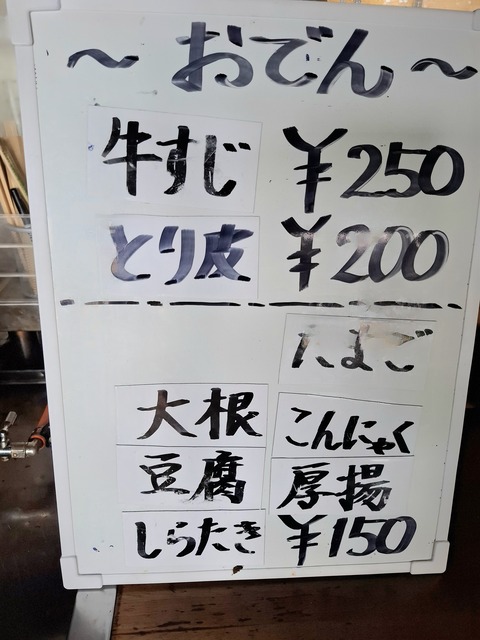 ～おでん～
牛すじ ¥250
とり皮 ¥200
たまご
大根 こんにゃく
豆腐 厚揚
しらたき ¥150